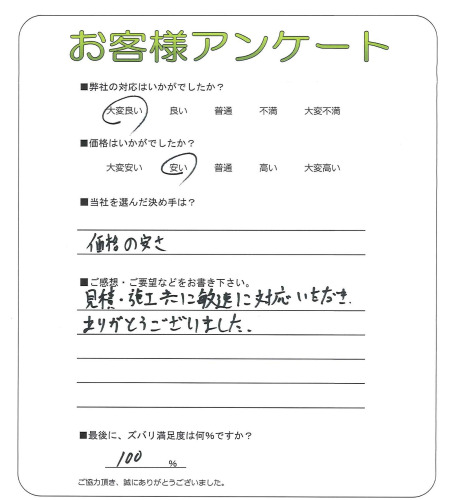 お客様アンケート
■弊社の対応はいかがでしたか?
大変良い 良い 普通 不満 大変不満
■価格はいかがでしたか?
大変安い 安い 普通 高い 大変高い
■当社を選んだ決め手は?
価格の安さ
■ご感想・ご要望などをお書き下さい。
見積・施工共に敏速に対応いただき、
ありがとうございました。
■最後に、ズバリ満足度は何%ですか?
100 %
ご協力頂き、誠にありがとうございました。